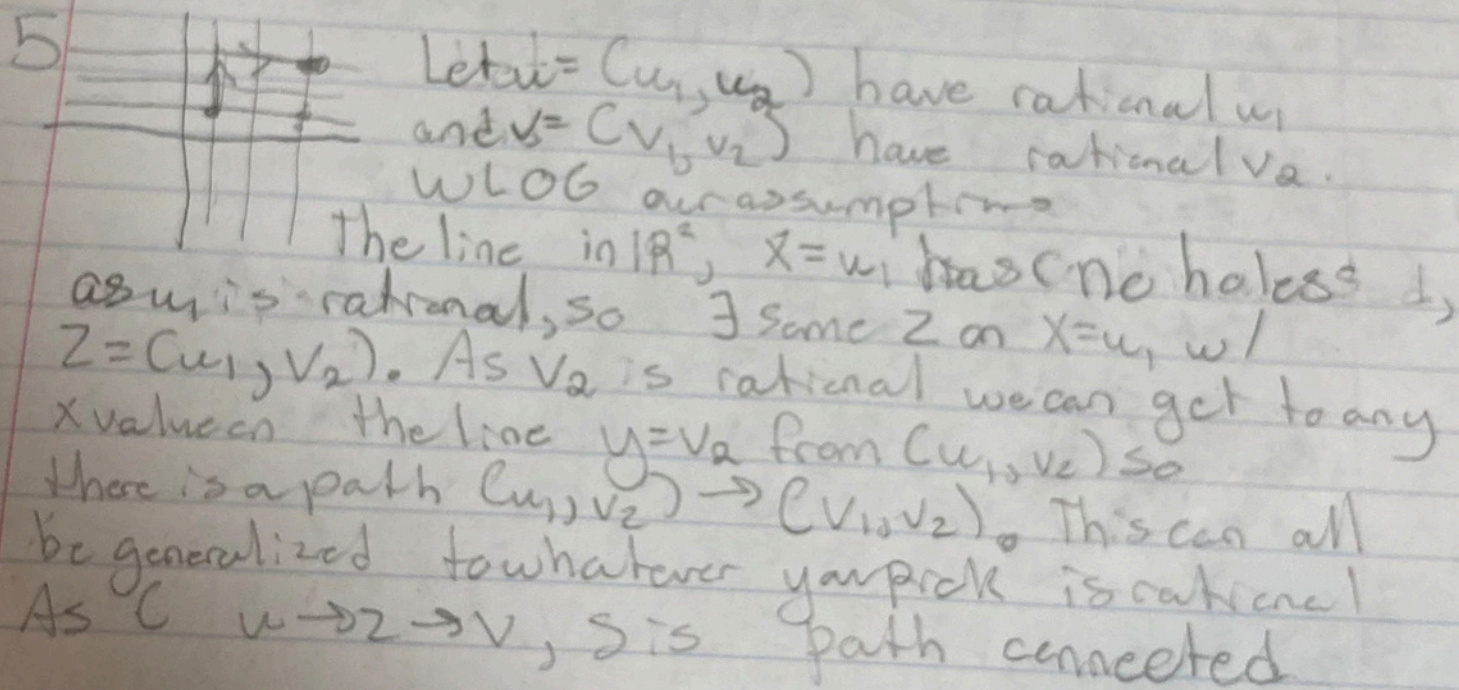 5
Let u = (u₁, u₂) have rational u₁
and v = (v₁, v₂) have rational v₂.
WLOG our assumption
The line in ℝ², x = u₁ has no holes
as u₁ is rational, so ∃ some z on x = u₁ w/
z = (u₁, v₂). As v₂ is rational we can get to any
x value on the line y = v₂ from (u₁, v₂) so
there is a path (u₁, v₂) → (v₁, v₂). This can all
be generalized to whatever you pick is rational
As u → z → v, S is path connected